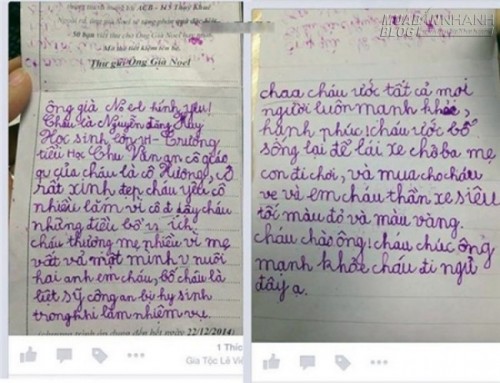 MUABANNHANH
BLOG
Thư gửi Ông Già Noel
ông già Noel kính yêu!
Cháu là Nguyễn Đăng Huy
Học sinh lớp 2H - Trường
tiểu Học Chu Văn An cô giáo
cháu là cô Hương, cô
rất xinh đẹp cháu yêu cô
nhiều lắm vì cô dạy cháu
những điều bổ ích
cháu thương mẹ nhiều vì mẹ
vất vả một mình nuôi
hai anh em cháu, bố cháu là
liệt sỹ công an bị hy sinh
trong khi làm nhiệm vụ.
22/12/2014)
cháu ước tất cả mọi
người luôn mạnh khỏe,
hạnh phúc! cháu ước bố
sống lại để lái xe chở ba mẹ
con đi chơi, và mua cho cháu
ve và em cháu thần xe siêu
tốc màu đỏ và màu vàng.
cháu chào ông! cháu chúc ông
mạnh khỏe cháu đi ngủ
đây ạ.
1 Thíc
Gia Tộc Lê Vi